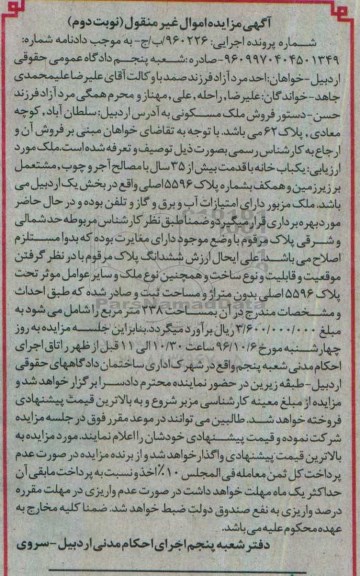 آگهی مزایده اموال غیر منقول (نوبت دوم)
شماره پرونده اجرایی: ۹۶۰۲۲۶/ب/ج- به موجب دادنامه شماره:
۹۶۰۹۹۷۰۴۰۴۵۰۱۳۴۹-صادره:شعبه پنجم دادگاه عمومی حقوقی
اردبیل -خواهان:احد مرد آزاد فرزند صمد با وکالت آقای علیرضا علیمحمدی
جاهد- خواندگان: علیرضا، راحله، علی، مهناز و محرم همگی مرد آزاد فرزند
حسن- دستور فروش ملک مسکونی به آدرس اردبیل: سلطان آباد، کوچه
معادی، پلاک ۶۲ می باشد. با توجه به تقاضای خواهان مبنی بر فروش آن و
ارجاع به کارشناس رسمی بصورت ذیل توصیف و تعرفه شده است. ملک مورد
ارزیابی: یکباب خانه با قدمت بیش از ۳۵ سال با مصالح آجر و چوب، مشتمل
بر زیرزمین و همکف بشماره پلاک ۵۵۹۶ اصلی واقع در بخش یک اردبیل می
باشد. ملک مزبور دارای امتیازات آب و برق و گاز و تلفن بوده و در حال حاضر
مورد بهره برداری قرار میگیرد و ضمنا طبق نظر کارشناس مربوطه حد شمالی
و شرقی پلاک مرقوم با وضع موجود دارای مغایرت بوده که بدوا مستلزم
اصلاح می باشد. علی ایحال ارزش ششدانگ پلاک مرقوم با در نظر گرفتن
موقعیت و قابلیت و نوع ساخت و همچنین نوع ملک و سایر عوامل موثر تحت
پلاک ۵۵۹۶ اصلی بدون متراژ و مساحت ثبت و صادر شده که طبق احداث
و مشخصات مندرج در آن بمساحت ۳۳۸ متر مربع را شامل می شود به
مبلغ ۳/۶۰۰/۰۰۰/۰۰۰ ریال برآورد میگردد. بنابراین جلسه مزایده به روز
چهارشنبه مورخ ۹۶/۱۰/۶ ساعت ۱۰/۳۰ الی ۱۱ قبل از ظهر در اتاق اجرای
احکام مدنی شعبه پنجم واقع در شهرک اداری ساختمان دادگاههای حقوقی
اردبیل - طبقه زیرین در حضور نماینده محترم دادسرا برگزار خواهد شد و
مزایده از مبلغ معینه کارشناسی مزبر شروع و به بالاترین قیمت پیشنهادی
فروخته خواهد شد. طالبین می توانند در موعد مقرر فوق در جلسه مزایده
شرکت نموده و قیمت پیشنهادی خودشان را اعلام نمایند. مورد مزایده به
بالاترین قیمت پیشنهادی واگذار خواهد شد و از برنده مزایده در صورت عدم
پرداخت کل ثمن معامله فی المجلس ۱۰٪ اخذ و نسبت به پرداخت مابقی آن
حداکثر یک ماه مهلت خواهد داشت در صورت عدم واریزی در مهلت مقرره
درصد واریزی به نفع صندوق دولت ضبط خواهد شد. ضمنا کلیه مخارج به
عهده محکوم علیه می باشد.
دفتر شعبه پنجم اجرای احکام مدنی اردبیل - سروی